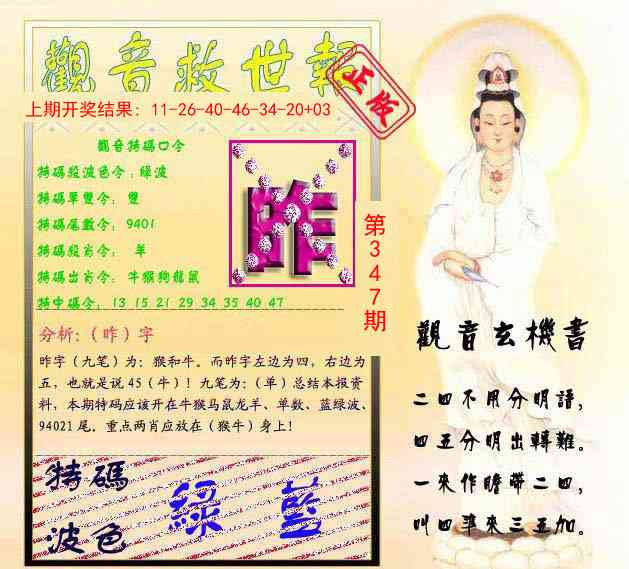 觀音救世報
正版
上期开奖结果：11-26-40-46-34-20+03
觀音特碼口令
特碼段波色令：綠波
特碼單雙令：雙
特碼尾數令：9401
特碼段肖令：羊
特碼出肖令：牛猴狗龍鼠
特中碼令：13 15 21 29 34 35 40 47
昨
第347期
分析：（昨）字
昨字（九笔）为：猴和牛。而昨字左边为四，右边为
五，也就是说45（牛）！九笔为：（单）总结本报资
料，本期特码应该开在牛猴马鼠龙羊、单数、蓝绿波、
94021尾。重点两肖应放在（猴牛）身上！
特碼
波色
綠藍
觀音玄機書
二四不用分明語，
四五分明出轉難。
一來作瞻帶二四，
叫四準來三五加。